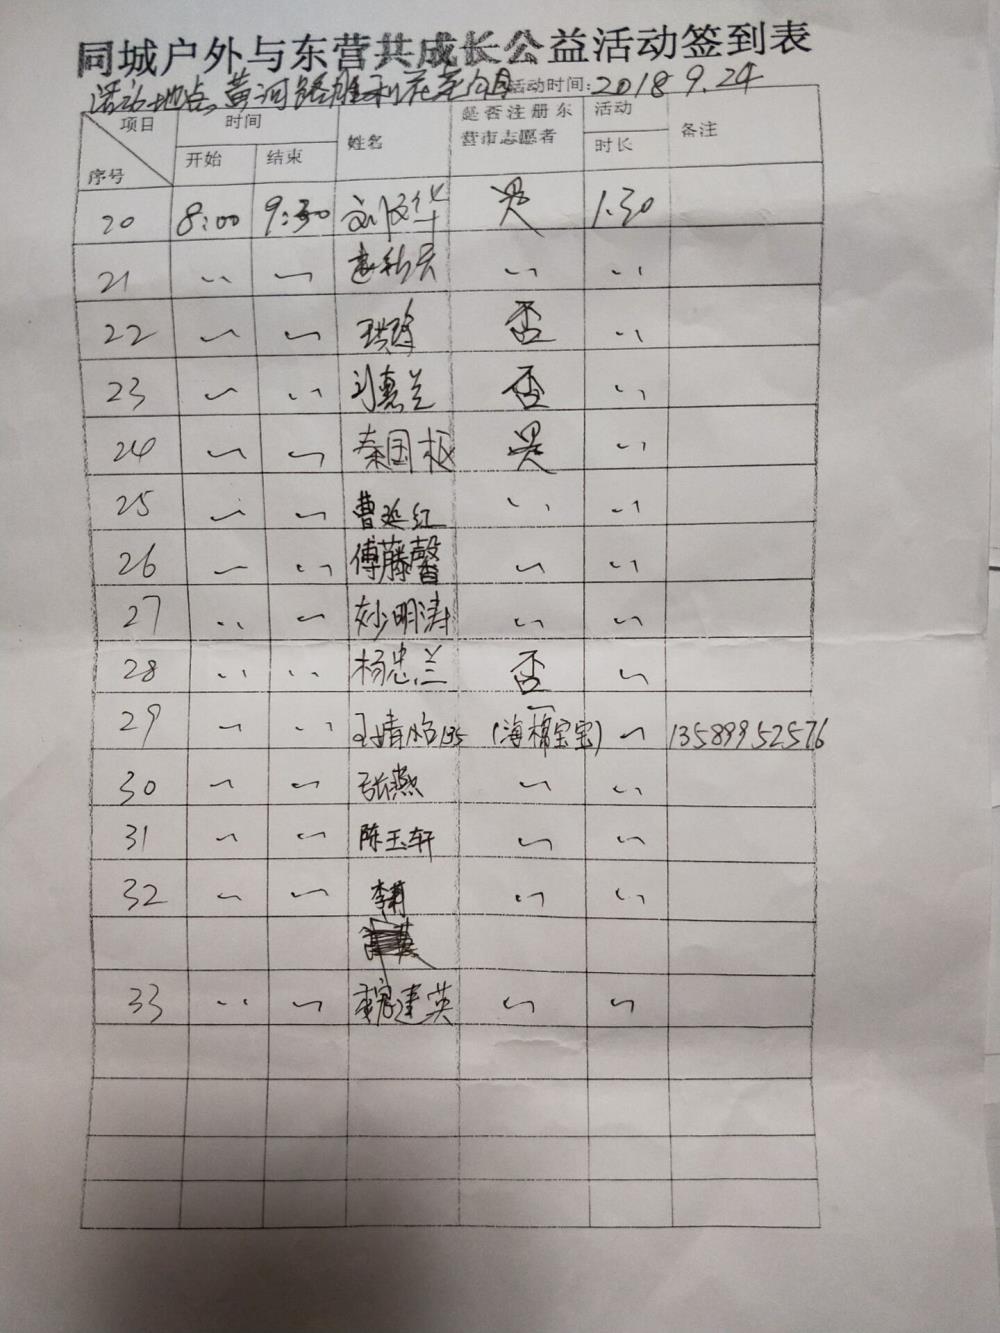 同城户外与东营共成长公益活动签到表
活动地点:黄河路 活动时间:2018 9.24
项目 时间 姓名 是否注册东营市志愿者 活动时长 备注
序号 开始 结束
20 8:00 9:30 是 1.30
21 〃 〃 〃 〃
22 〃 〃 否 〃
23 〃 〃 刘惠兰 否 〃
24 〃 〃 秦国枢 是 〃
25 〃 〃 曹延红 〃 〃
26 〃 〃 傅藤馨 〃 〃
27 〃 〃 明涛 〃 〃
28 〃 〃 杨忠兰 否 〃
29 〃 〃 王婧 135 (海棉宝宝) 〃 13589952576
30 〃 〃 张燕 〃 〃
31 〃 〃 陈玉轩 〃 〃
32 〃 〃 李 〃 〃
33 〃 〃 建英 〃 〃